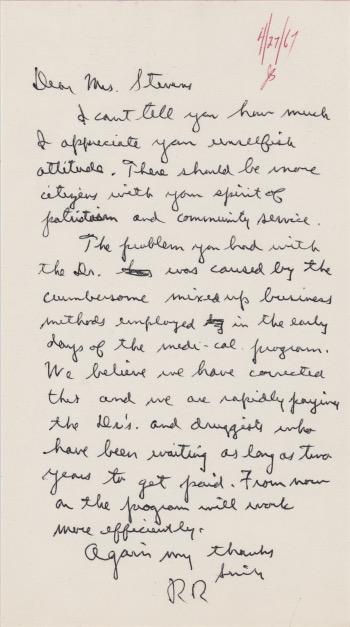 4/27/67
Dear Mrs. Stevens
I can't tell you how much
I appreciate your unselfish
attitude. There should be more
citizens with your spirit of
patriotism and community service.
The problem you had with
the Dr. was caused by the
cumbersome mixed up business
methods employed in the early
days of the medi-cal program.
We believe we have corrected
this and we are rapidly paying
the Dr's. and druggists who
have been waiting as long as two
years to get paid. From now
on the program will work
more efficiently.
Again my thanks
RR